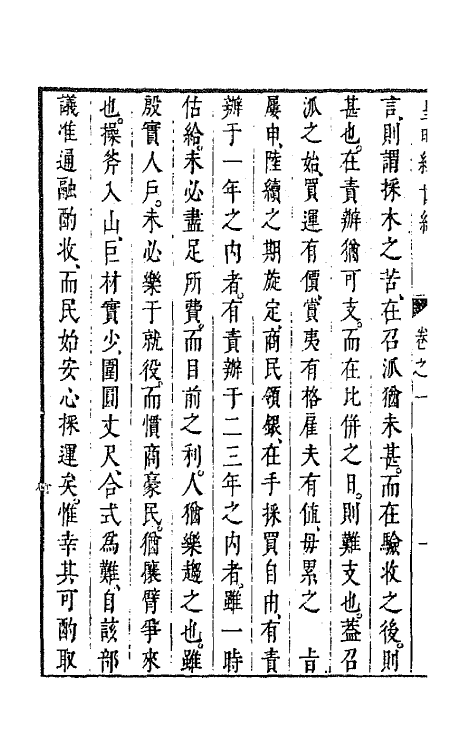 卷之一
言、則謂採木之苦、在召派猶未甚、而在驗收之後、則
甚也。在責辦猶可支。而在比併之日。則難支也。蓋召
派之始、買運有價、賞夷有格、雇夫有値、毋累之 旨
屢申、陸續之期旋定、商民領銀、在手採買自由、有責
辦于一年之內者。有責辦于二三年之內者。雖一時
估給、未必盡足所費。而目前之利。人猶樂趨之也。雖
殷實人戶。未必樂于就役。而慣商豪民。猶攘臂爭來
也。操斧入山、巨材實少、圍圓丈尺、合式爲難、自該部
議准通融酌收、而民始安心採運矣。惟幸其可酌取